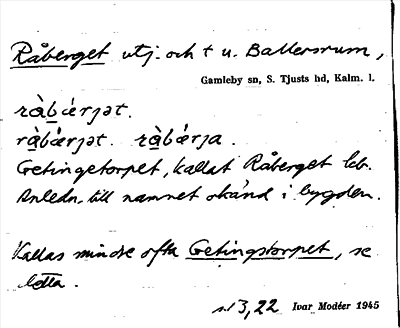 Råberget utj. och t u. Ballersrum,
Gamleby sn, S. Tjusts hd, Kalm. l.
ràbǽrjət.
ràbǽrjət. ràbǽrja.
Getingetorpet, kallat Råberget lcb.
Anledn. till namnet okänd i bygden.
Kallas mindre ofta Getingstorpet, se
detta.
s. 3, 22 Ivar Modéer 1945